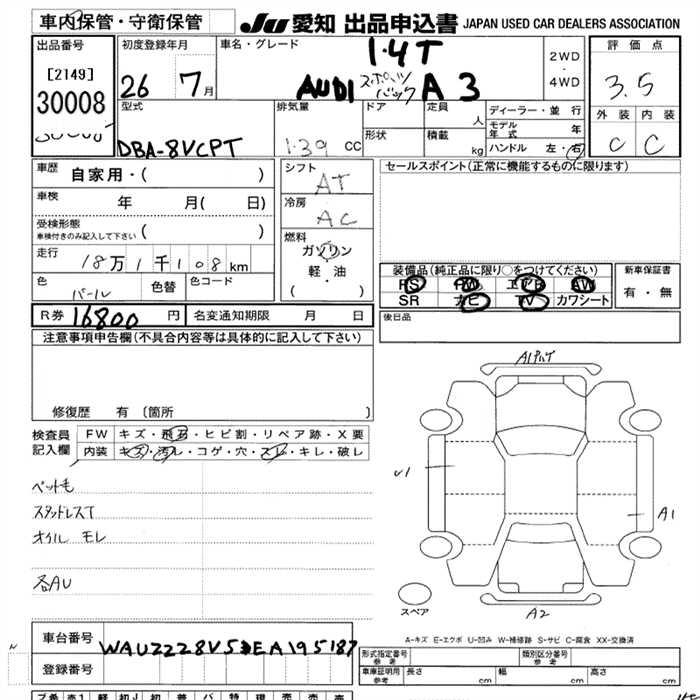 車内保管・守衛保管
JU 愛知 出品申込書 JAPAN USED CAR DEALERS ASSOCIATION
出品番号
[2149]
30008
初度登録年月
26 7月
車名・グレード
1.4T
AUDI スポーツバック A3
2WD
・
4WD
評価点
3.5
外装 内装
C C
型式
DBA-8VCPT
排気量
1.39 CC
ドア
形状
定員 人
積載 kg
ディーラー・並行
モデル年式 年
ハンドル 左・右
車歴
自家用・( )
車検
年 月( 日)
受検形態
車検付きのみ記入して下さい ( )
走行
18万1千108km
色
パール
色替
色コード
シフト
AT
冷房
AC
燃料
ガソリン
軽・油
( ・ )
セールスポイント(正常に機能するものに限ります)
装備品(純正品に限り○をつけてください)
PS PW エアB AW
SR ナビ TV カワシート
新車保証書
有・無
後日品
R券 16800円
名変通知期限 月 日
注意事項申告欄(不具合内容等は具体的に記入して下さい)
修復歴 有〔箇所 〕
検査員
記入欄
FW キズ・飛石・ヒビ割・リペア跡・X要
内装 キズ・汚レ・コゲ・穴・スレ・キレ・破レ
ペット毛
スタッドレスT
オイル モレ
各AU
A1
U1
A1
A2
スペア
A-キズ E-エクボ U-凹み W-補修跡 S-サビ C-腐食 XX-交換済
車台番号
登録番号
型式指定番号
参考
類別区分番号
参考
車庫証明用
参考
長さ cm
幅 cm
高さ cm